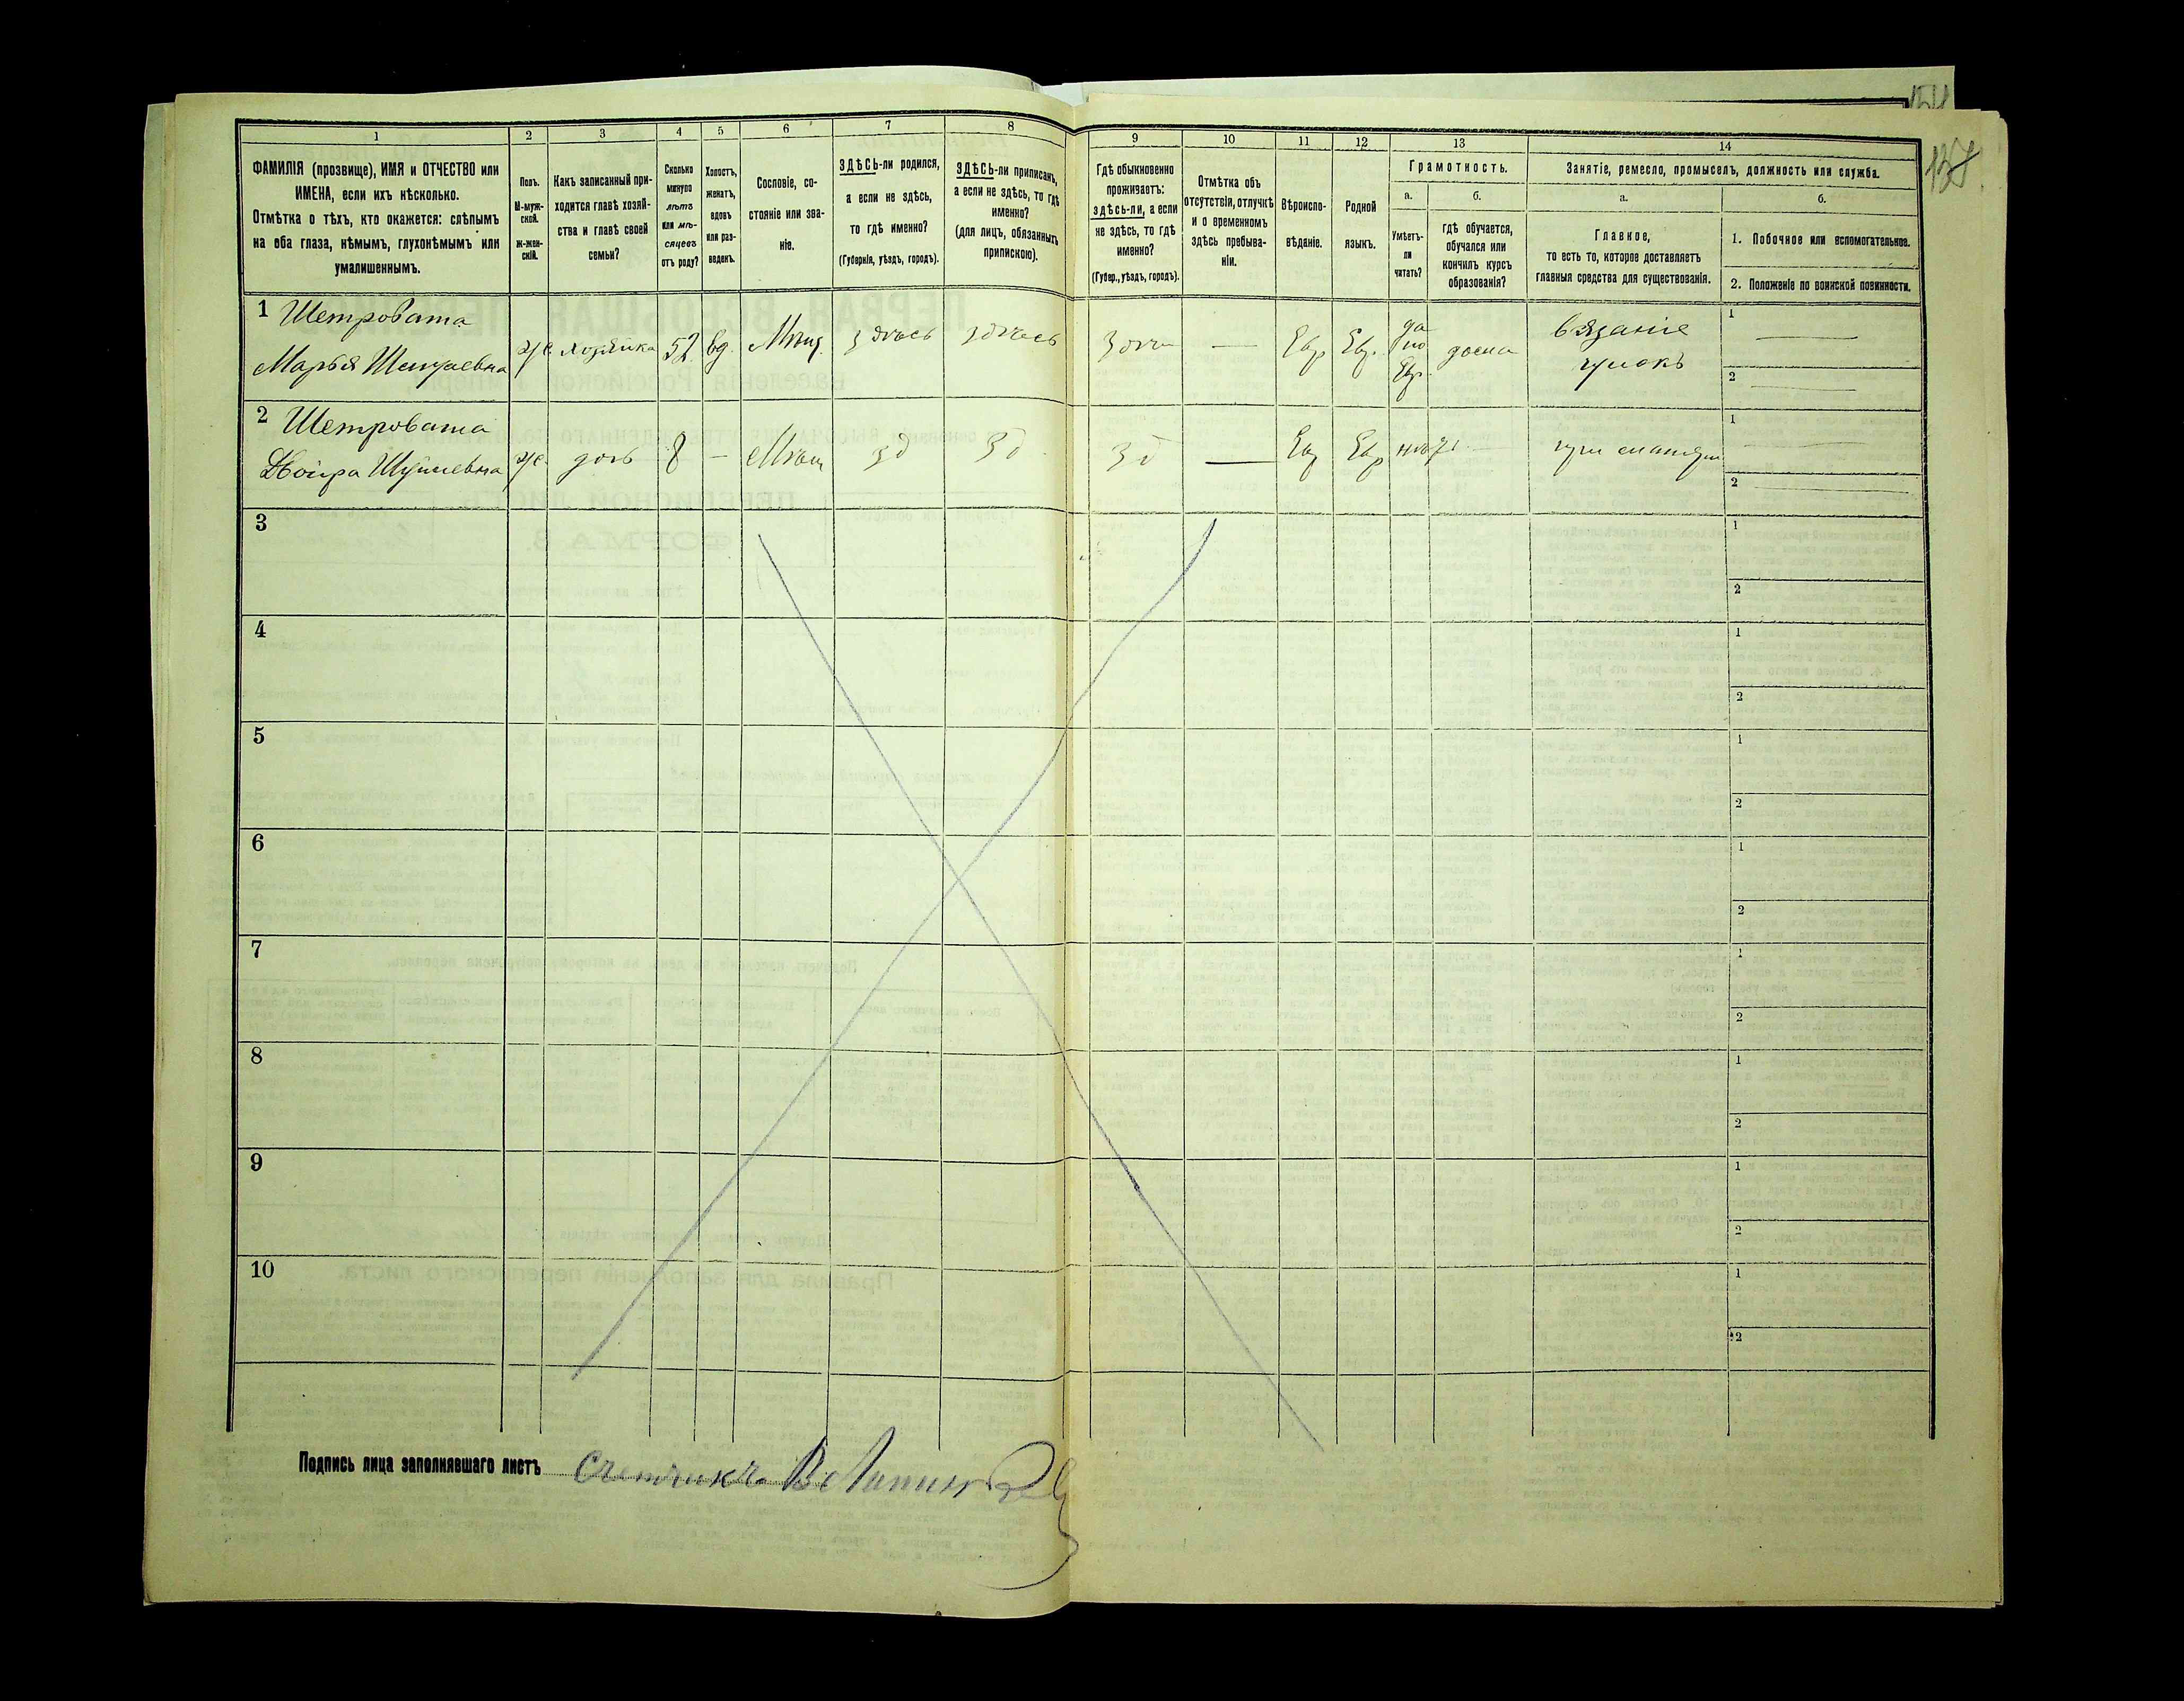 1
2
3
4
5
6
7
8
ФАМИЛІЯ (прозвище), ИМЯ и ОТЧЕСТВО или
ИМЕНА, если ихъ нѣсколько.
Отмѣтка о тѣхъ, кто окажется: слѣпымъ
на оба глаза, нѣмымъ, глухонѣмымъ или
умалишеннымъ.
Полъ.
М-муж-
ской.
ж-жен-
скій.
Какъ записанный при-
ходится главѣ хозяй-
ства и главѣ своей
семьи?
Сколько
минуло
лѣтъ
или мѣ-
сяцевъ
отъ роду?
Холостъ,
женатъ,
вдовъ
или раз-
веденъ.
Сословіе, со-
стояніе или зва-
ніе.
ЗДѢСЬ-ли родился,
а если не здѣсь,
то гдѣ именно?
(Губернія, уѣздъ, городъ).
ЗДѢСЬ-ли приписанъ,
а если не здѣсь, то гдѣ
именно?
(для лицъ, обязанныхъ
припискою).
9
10
11
12
13
14
Гдѣ обыкновенно
проживаетъ:
здѣсь-ли, а если
не здѣсь, то гдѣ
именно?
(Губер., уѣздъ, городъ).
Отмѣтка объ
отсутствіи, отлучкѣ
и о временномъ
здѣсь пребыва-
ніи.
Вѣроиспо-
вѣданіе.
Родной
языкъ.
Грамотность.
а.
Умѣетъ-
ли
читать?
б.
гдѣ обучается,
обучался или
кончилъ курсъ
образованія?
Занятіе, ремесло, промыселъ, должность или служба.
а.
Главное,
то есть то, которое доставляетъ
главныя средства для существованія.
б.
1. Побочное или вспомогательное.
2. Положеніе по воинской повинности.
1 Шетровата
Марья
ж хозяйка 52 вд. Мѣщ. здѣсь здѣсь
— Евр Евр.
да
по
Евр.
дома
вязаніе
чулокъ
1 —
2 —
2 Шетровата
Двойра
ж. дочь 8 — Мѣщ зд зд
зд — Евр Евр нѣтъ
при матери
1 —
2 —
3
1
2
4
1
2
5
1
2
6
1
2
7
1
2
8
1
2
9
1
2
10
1
2
Подпись лица заполнявшаго листъ Счетчикъ